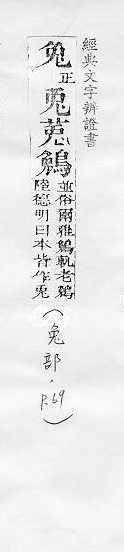 經典文字辨證書
兔正兎菟鵵並俗爾雅鵵軌老鵵
陸德明曰本皆作兎
(兔部,P.69)